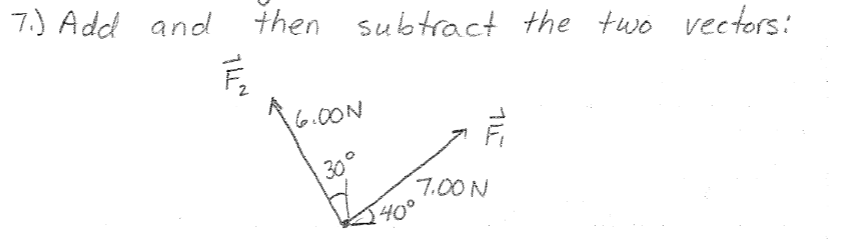 7.) Add and then subtract the two vectors:
F₂
6.00N
F₁
30°
7.00N
40°